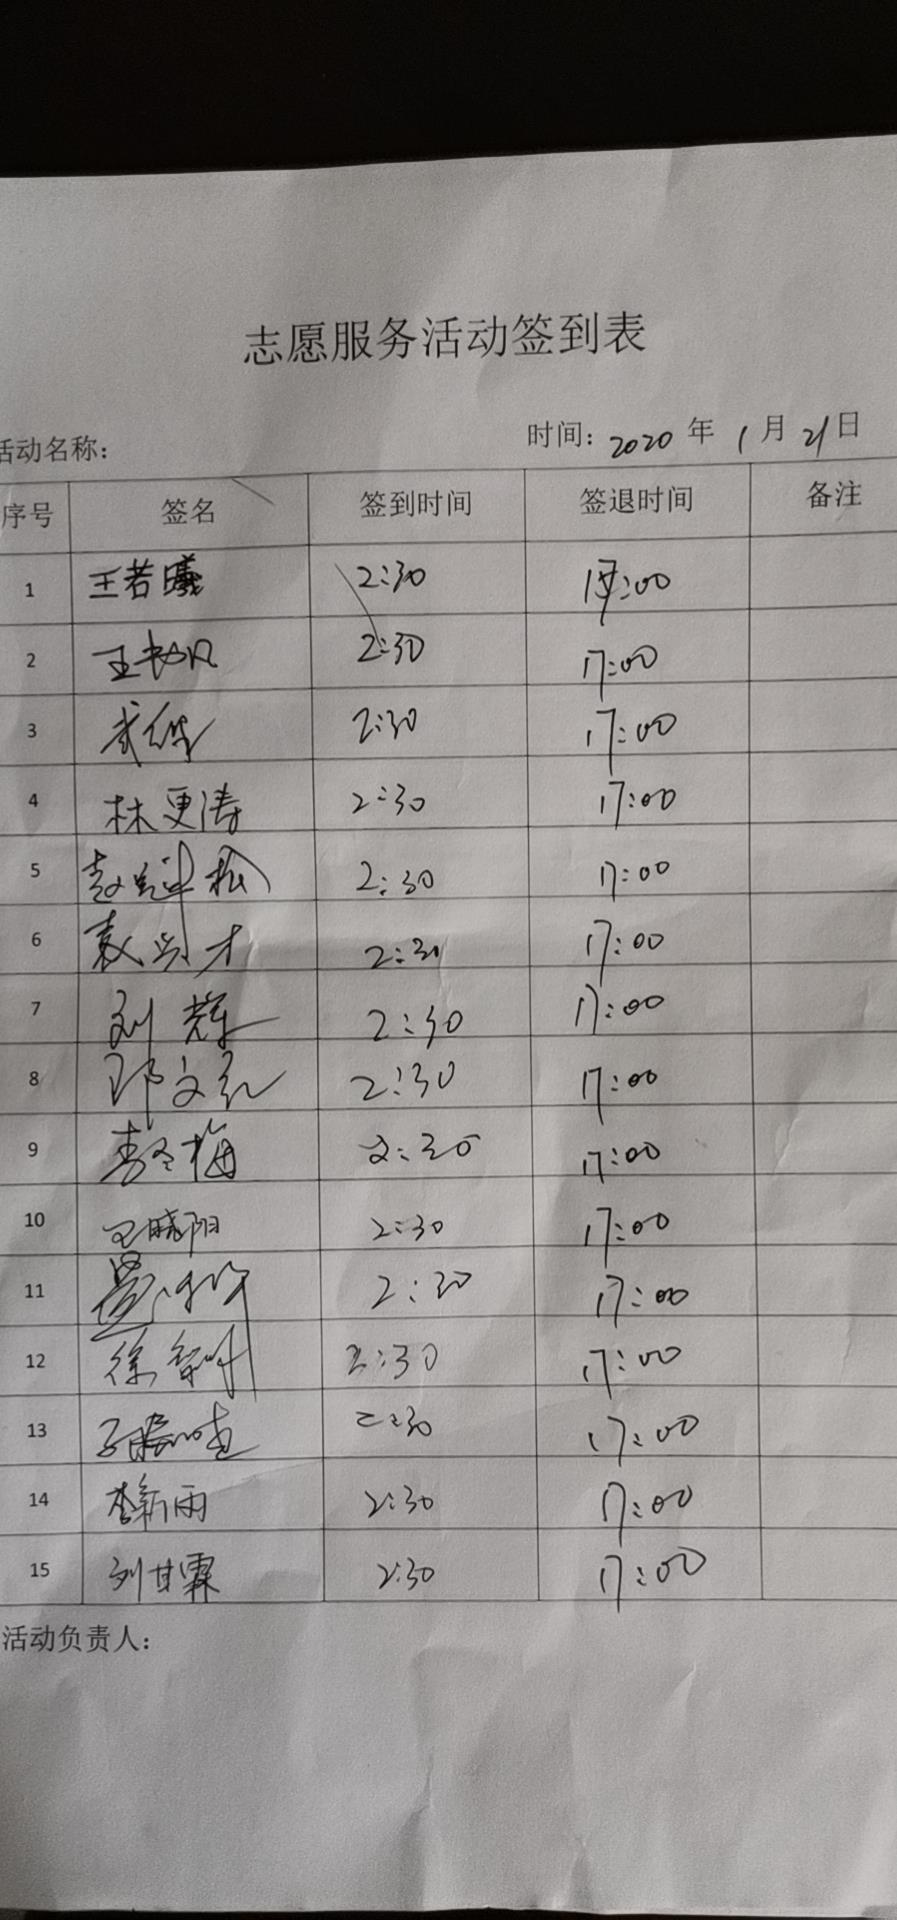 志愿服务活动签到表
活动名称: 时间: 2020 年 1 月 21 日
序号 签名 签到时间 签退时间 备注
1 王若曦 2:30 17:00
2 2:30 17:00
3 2:30 17:00
4 林更涛 2:30 17:00
5 2:30 17:00
6 袁兴才 2:30 17:00
7 刘辉 2:30 17:00
8 邓文 2:30 17:00
9 李冬梅 2:30 17:00
10 王晓阳 2:30 17:00
11 2:30 17:00
12 徐 2:30 17:00
13 2:30 17:00
14 李新雨 2:30 17:00
15 刘甘霖 2:30 17:00
活动负责人: